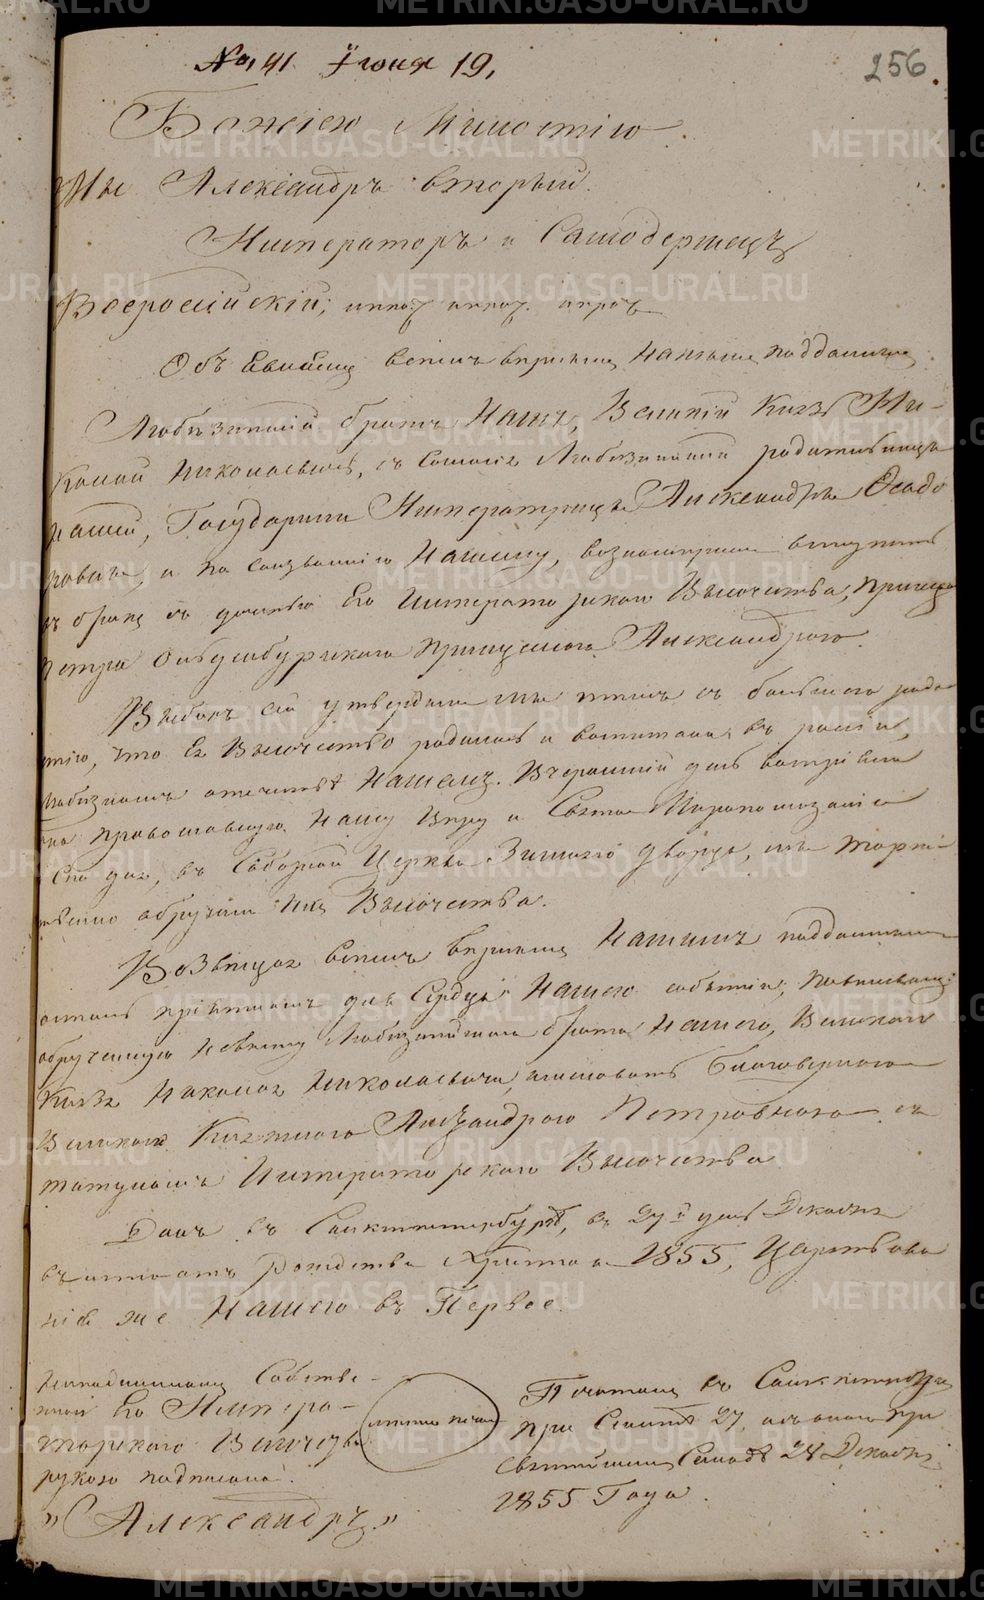 No 141 Іюня 19,
256
Божіею Милостію
Мы Александръ вторый.
Императоръ и Самодержецъ
Всероссійскій,
Объявляемъ всемъ вернымъ Нашимъ подданнымъ
Любезнѣйшій братъ Нашъ, Великій Князь Ни-
колай Николаевичь, съ Согласія Любезнѣйшей родительницы
Нашей, Государыни Императрицы Александры Ѳеодо
ровны, и по соизволенію Нашему, вознамѣрился вступить
въ бракъ съ дочерью Его Императорскаго Высочества, Принца
Петра Ольденбургскаго Принцессою Александрою.
Выборъ сей утвердили мы тѣмъ съ большею радо
тію, что Ея Высочество родилась и воспитана въ россіи,
любезномъ отечествѣ Нашемъ. Вчерашній день воспріяла
она православную Нашу Вѣру и Святое Миропомазаніе
Сего дня, въ Соборной Церкви Зимняго дворца, мы торже-
ственно обручили Ихъ Высочества.
Возвѣщая всемъ вернымъ Нашимъ подданнымъ
о семъ пріятномъ для Сердца Нашего событіи, повелѣваемъ:
обрученную невѣсту Любезнѣйшаго брата Нашего, Великаго
Князя Николая Николаевича, именовать Благоверною
Великою Княжною Александрою Петровною съ
титуломъ Императорскаго Высочества
Данъ въ Санктпетербургѣ, въ 27й день Декабря
въ лѣто отъ Рождества Христова 1855, Царствова
нія же Нашего въ Первое.
На подлинномъ Собстве-
нной Его Импера-
торскаго Величества
рукою подписано.
„Александръ.“
место печати
Печатанъ въ Санктпетербургѣ
при Сенатѣ 27, а съ онаго при
Святѣйшемъ Синодѣ 28 Декабря
1855 Года.
METRIKI.GASO-URAL.RU